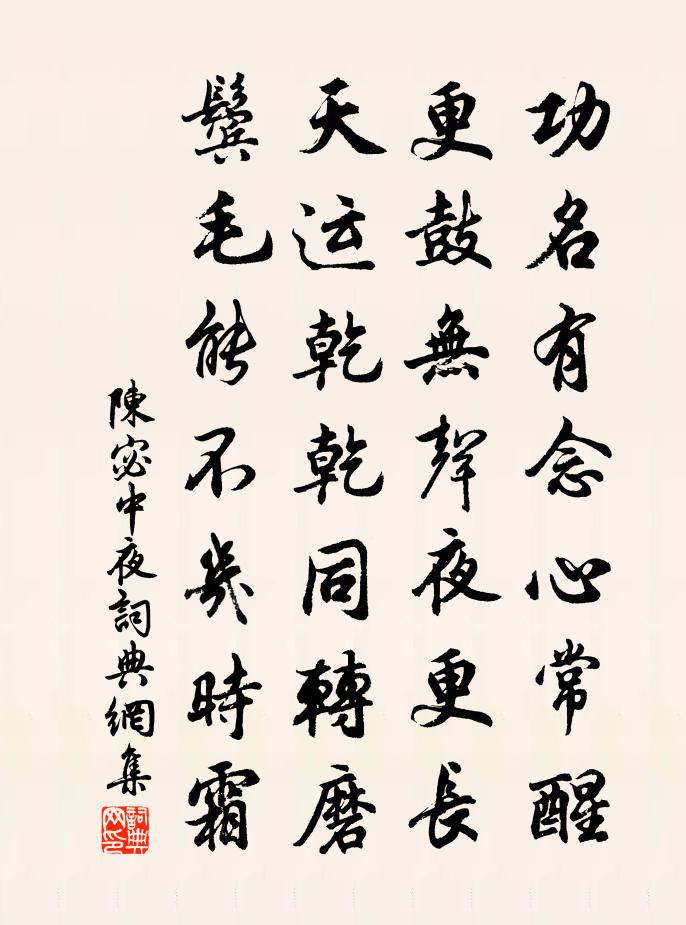 功名有念心常醒
更鼓無聲夜更長
天运乾乾同轉磨
鬓毛能不幾時霜
陳宓中夜詞典網集
詞典网印